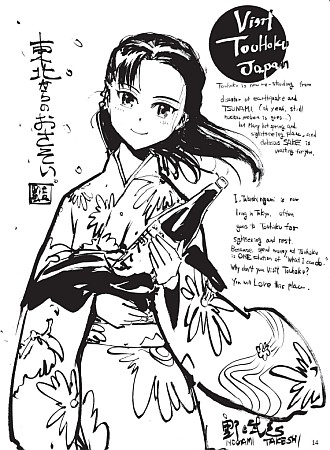 東北からのおさそい。
Visit
TouHoku
Japan
Touhoku is now re-standing from
disaster of earthquake and
TSUNAMI (oh yeah, still
nuclear problem is goes...)
but Many hot spring and
sightseeing place, and
delicious SAKE is
waiting for you.
I, Takeshi nogami is now
living in Tokyo, often
goes to Touhoku for
sightseeing and rest.
Because, spend money at Touhoku
is ONE solution of "What I can do."
Why don't you VISIT Touhoku?
You will Love this place.
NOGAMI TAKESHI
14